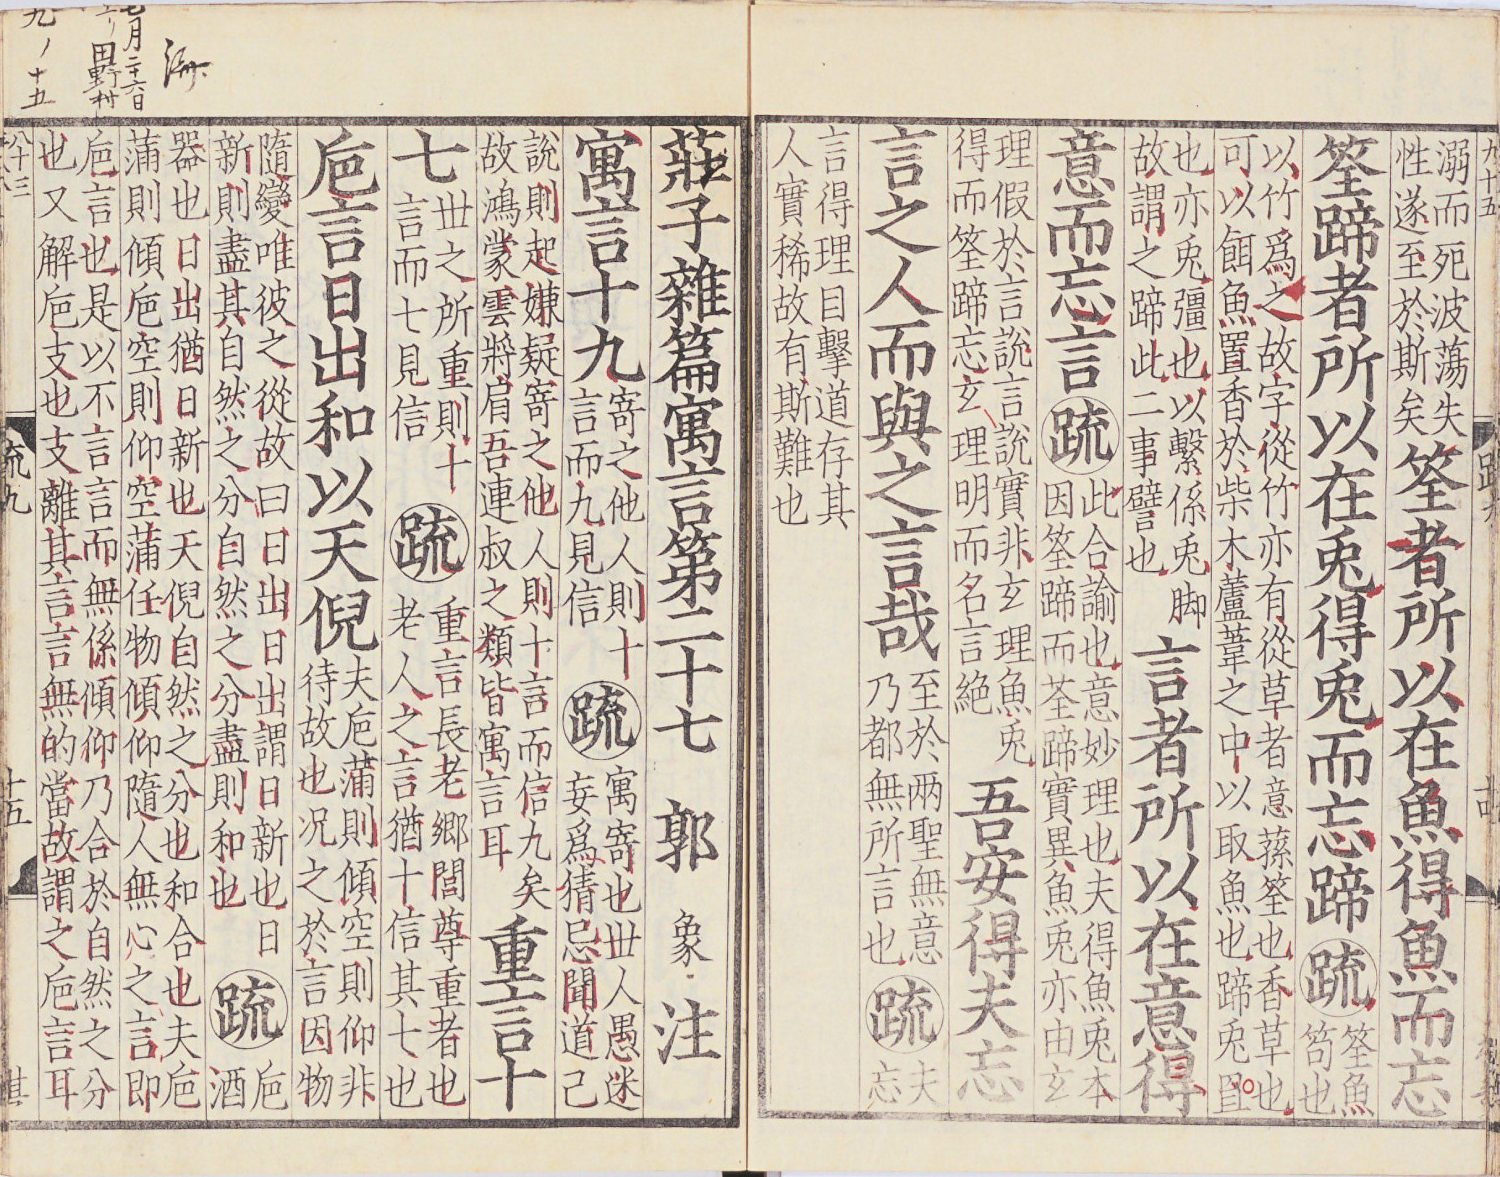 九十五
溺而死波蕩失
性遂至於斯矣
筌者所以在魚得魚而忘
筌蹄者所以在兎得兎而忘蹄 疏
筌魚
笱也
以竹爲之故字從竹亦有從草者意蓀筌也香草也
可以餌魚置香於柴木蘆葦之中以取魚也蹄兎罝
也亦兎彊也以繫係兎脚
故謂之蹄此二事譬也
言者所以在意得
意而忘言 疏
此合諭也意妙理也夫得魚兎本
因筌蹄而荃蹄實異魚兎亦由玄
理假於言說言說實非玄理魚兎
得而筌蹄忘玄理明而名言絕
吾安得夫忘
言之人而與之言哉
至於兩聖無意
乃都無所言也
疏
夫
忘
言得理目擊道存其
人實稀故有斯難也
莊子雜篇寓言第二十七 郭 象 注
寓言十九
寄之他人則十
言而九見信
疏
寓寄也丗人愚迷
妄爲猜忌聞道己
說則起嫌疑寄之他人則十言而信九矣
故鴻蒙雲將肩吾連叔之類皆寓言耳
重言十
七
丗之所重則十
言而七見信
疏
重言長老鄉閭尊重者也
老人之言猶十信其七也
巵言日出和以天倪
夫巵滿則傾空則仰非
待故也况之於言因物
隨變唯彼之從故曰日出日出謂日新也日
新則盡其自然之分自然之分盡則和也
疏
巵
酒
器也日出猶日新也天倪自然之分也和合也夫巵
滿則傾巵空則仰空滿任物傾仰隨人無心之言即
巵言也是以不言言而無係傾仰乃合於自然之分
也又解巵支也支離其言言無的當故謂之巵言耳
疏九
十五
七月二十六日
田野村
九ノ十五